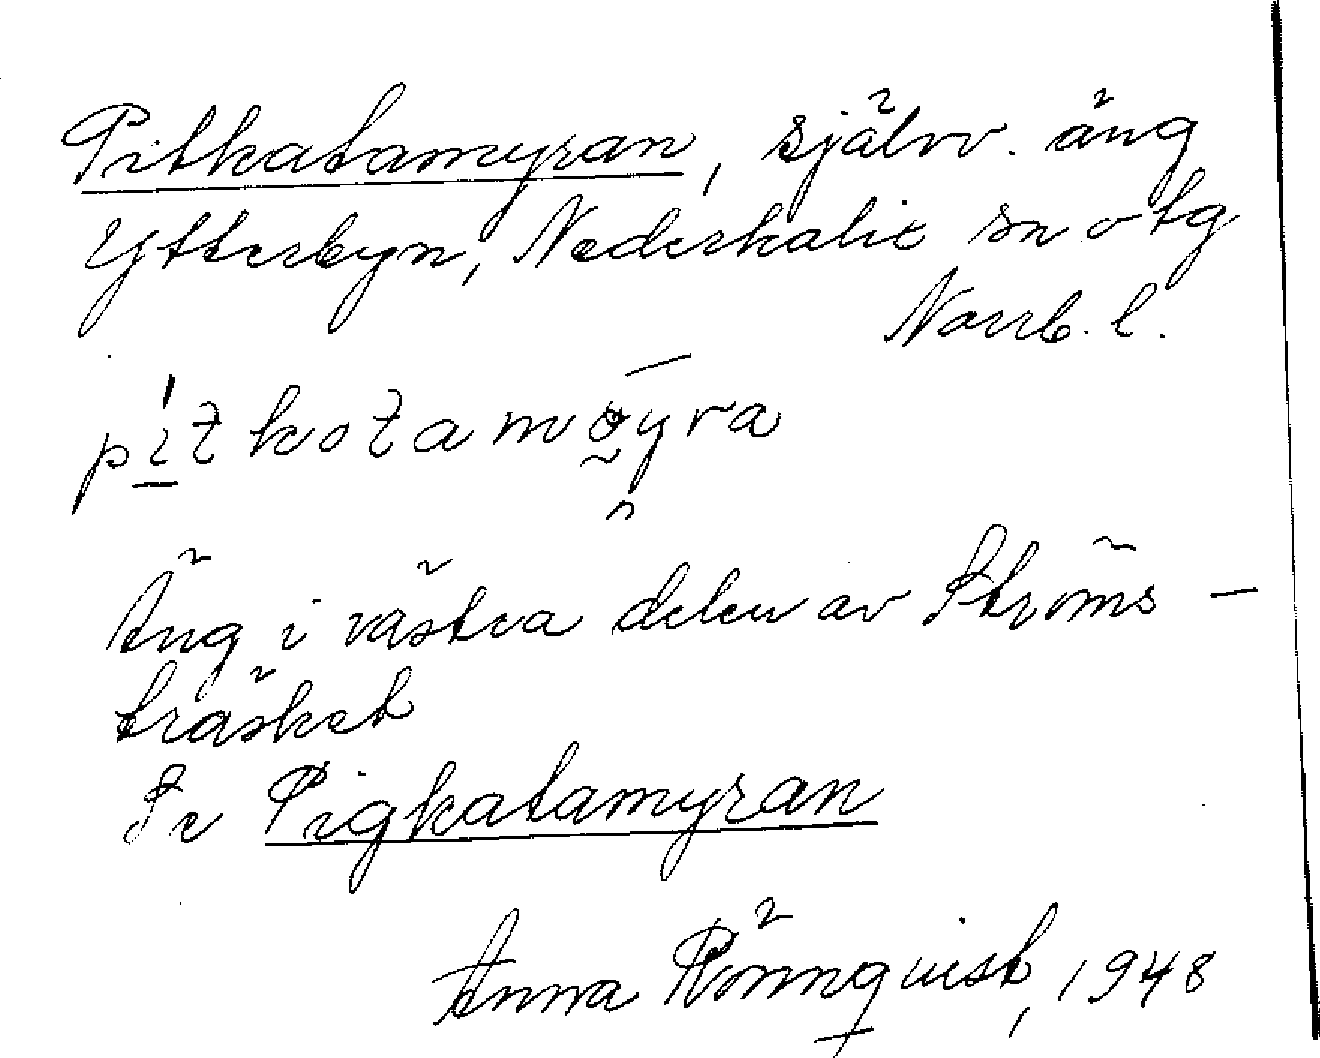 Pitkatamyran, självv. äng
Ytterbyn, Nederkalix sn o tg
Norrb. l.
pítkotamöyra
Äng i västra delen av Ströms-
träsket
Se Pigkatamyran
Anna Rönnqvist, 1948